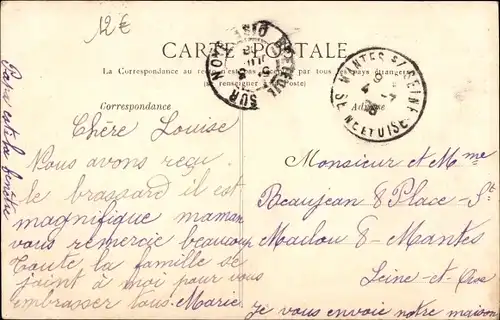 12€
CARTE POSTALE
La Correspondance au recto n'est pas acceptée par tous les pays étrangers
(se renseigner à la Poste)
Correspondance
Adresse
MANTES S/ SEINE
SEINE ET OISE
BRETEUIL SUR NOYE OISE
Papa est à la fenêtre
Chère Louise
Nous avons reçu
le brassard il est
magnifique maman
vous remercie beaucoup
Toute la famille se
joint à moi pour vous
embrasser tous. Marie.
Monsieur et Mme
Beaujean 8 Place St
Maclou 8 Mantes
Seine-et-Oise
Je vous envoie notre maison